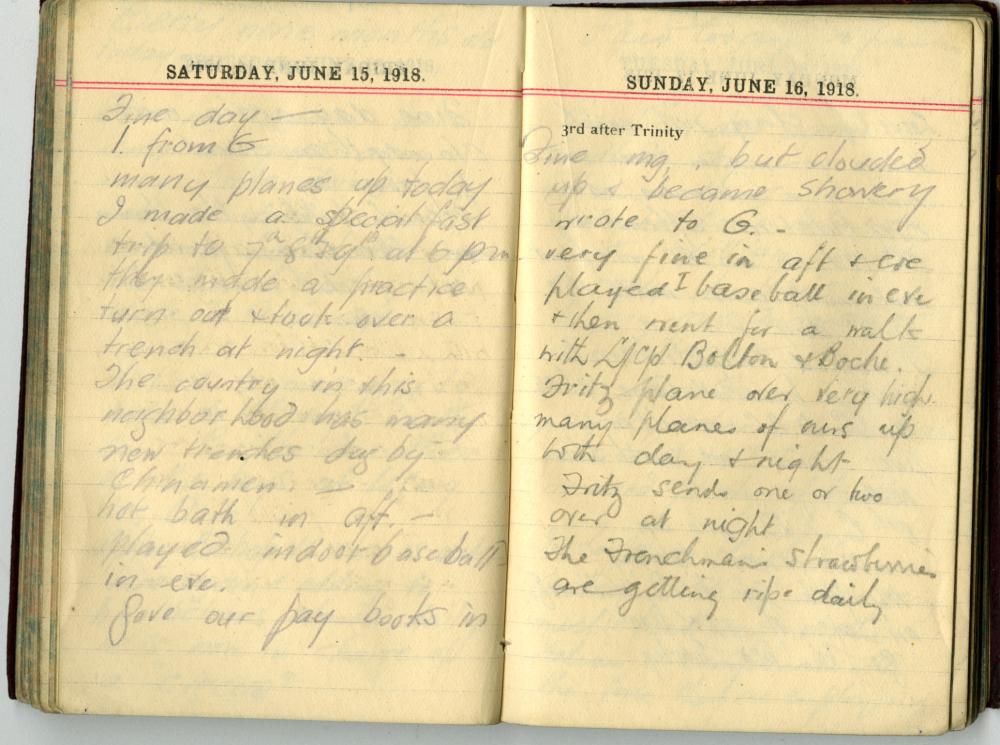 SATURDAY, JUNE 15, 1918.
Fine day —
1 from G
many planes up today
I made a special fast
trip to 7th 8th & 9th at 6 pm.
they made a practice
turn out & took over a
trench at night. -
The country in this
neighborhood has many
new trenches dug by
Chinamen. —
hot bath in aft. —
played indoor baseball
in eve.
Gave our pay books in
SUNDAY, JUNE 16, 1918.
3rd after Trinity
Fine mg. but clouded
up & became showery
wrote to G. -
very fine in aft & eve
played I baseball in eve
& then went for a walk
with L/Cpl Bolton & Boche.
Fritz plane over very high.
many planes of ours up
both day & night
Fritz sends one or two
over at night
The Frenchman's strawberries
are getting ripe daily